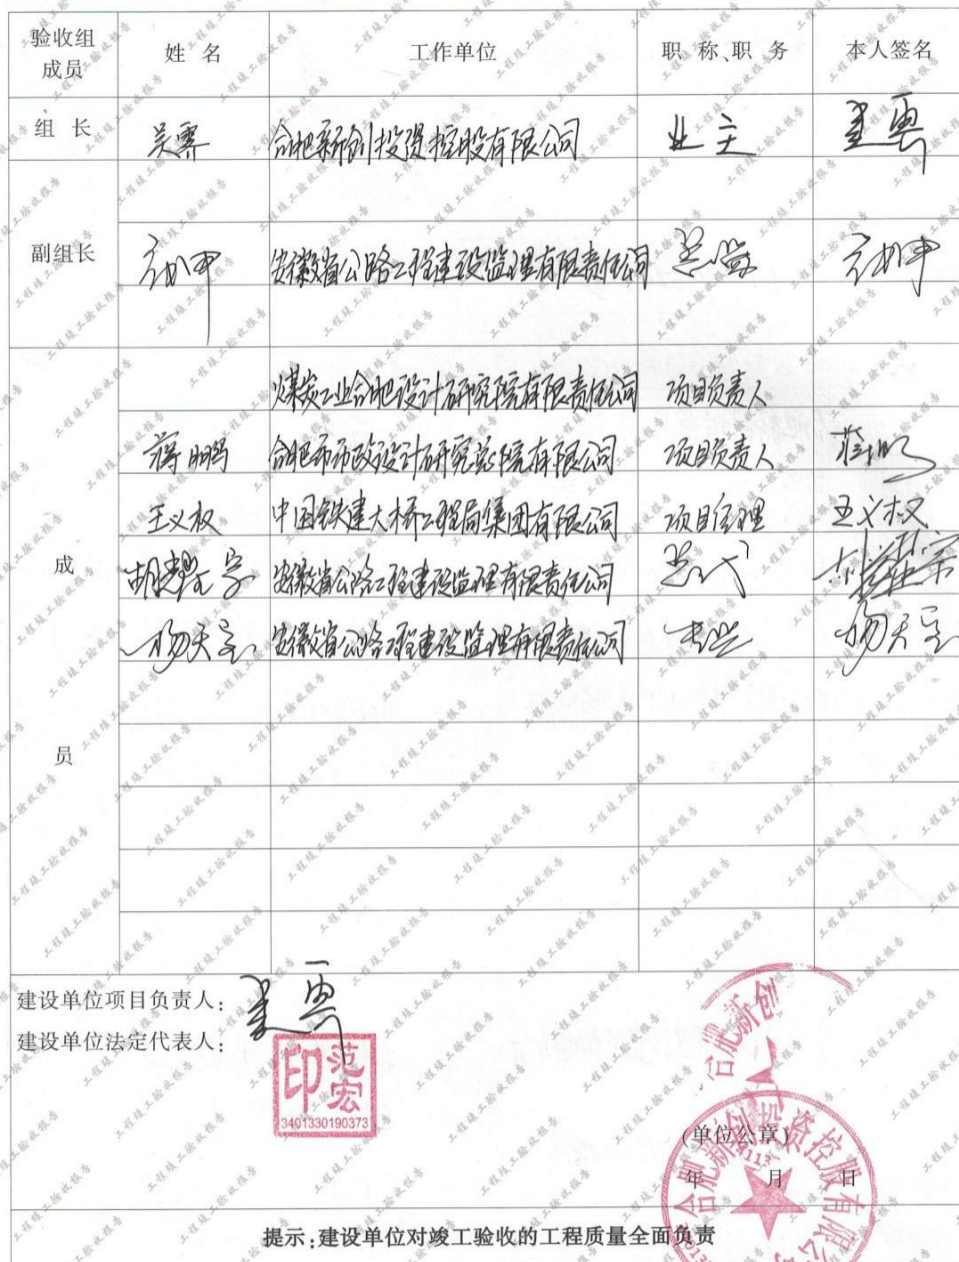 验收组成员 姓名 工作单位 职称、职务 本人签名
组长 吴霁 合肥新创投资控股有限公司 业主
副组长 安徽省公路工程建设监理有限责任公司 总监
煤炭工业合肥设计研究院有限责任公司 项目负责人
蒋鹏 合肥市市政设计研究总院有限公司 项目负责人 蒋鹏
王义权 中国铁建大桥工程局集团有限公司 项目经理 王义权
成员 安徽省公路工程建设监理有限责任公司 总代
杨天宝 安徽省公路工程建设监理有限责任公司 专监 杨天宝
建设单位项目负责人:
建设单位法定代表人:
范宏印
3401330190373
合肥新创
合肥新创投资控股有限公
(单位公章)
年 月 日
提示:建设单位对竣工验收的工程质量全面负责
工程竣工验收报告